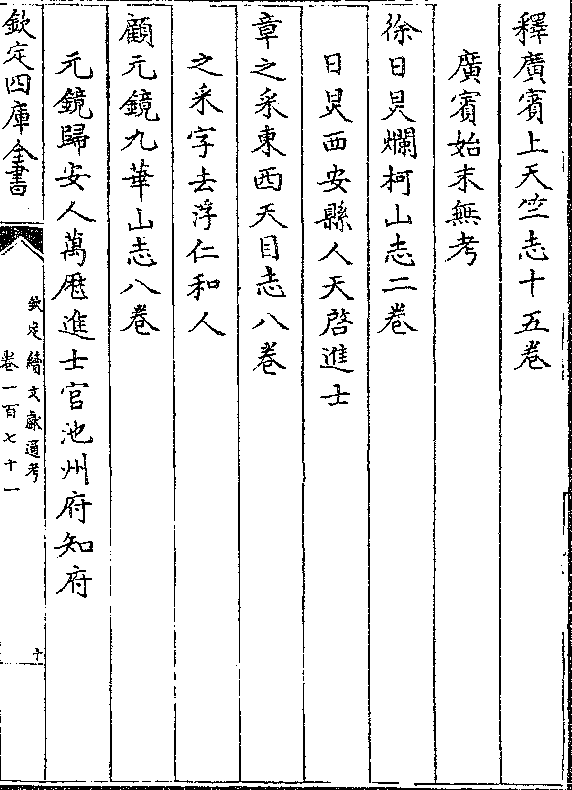 釋廣賓上天竺志十五卷
廣賓始末無考
徐日炅爛柯山志二卷
日炅西安縣人天啓進士
章之采東西天目志八卷
之采字去浮仁和人
顧元鏡九華山志八卷
元鏡歸安人萬厯進士官池州府知府
欽定四庫全書
欽定續文獻通考
卷一百七十一
十